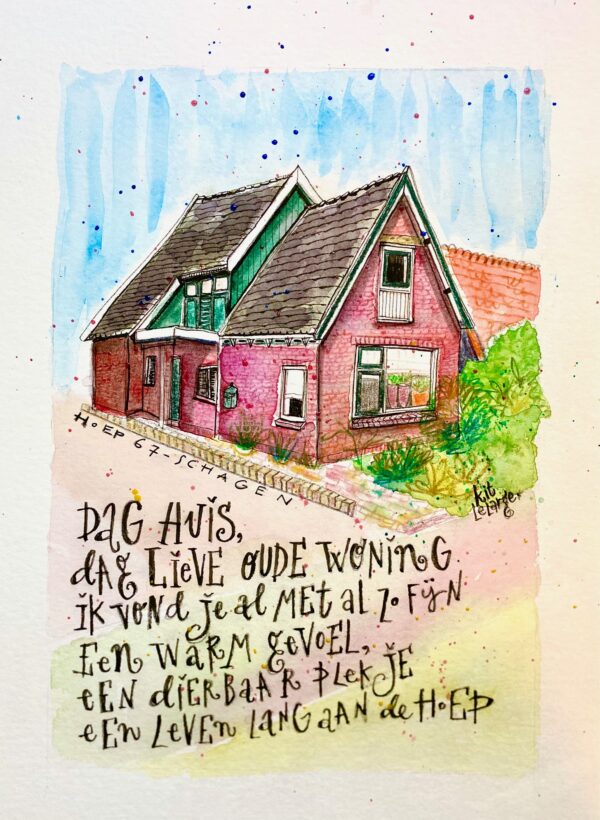 HOEP 67 - SCHAGEN
Kit
LeLarge
DAG HUIS,
DAG LIEVE OUDE WONING
IK VOND JE AL MET AL ZO FIJN
EEN WARM GEVOEL,
EEN DIERBAAR PLEKJE
EEN LEVEN LANG AAN de HOEP